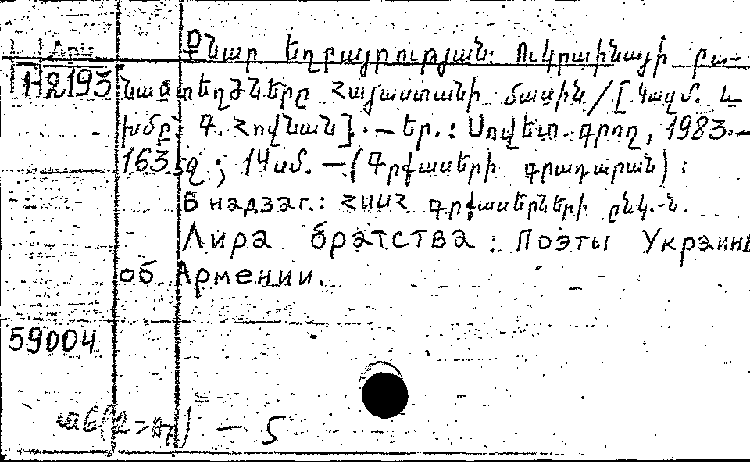 Քնար եղբայրության: Ուկրաինայի բա-
Н2193 նաստեղծները Հայաստանի մասին/[Կազմ. և
խմբ. Գ. Հովնան]. — Եր.: Սովետ. գրող, 1983.—
163 էջ; 14սմ. —(Գրքասերի գրադարան):
В надзаг.: ՀՍՍՀ գրքասերների ընկ.-ն.
Лира братства: Поэты Украины
об Армении.
59004
— 5